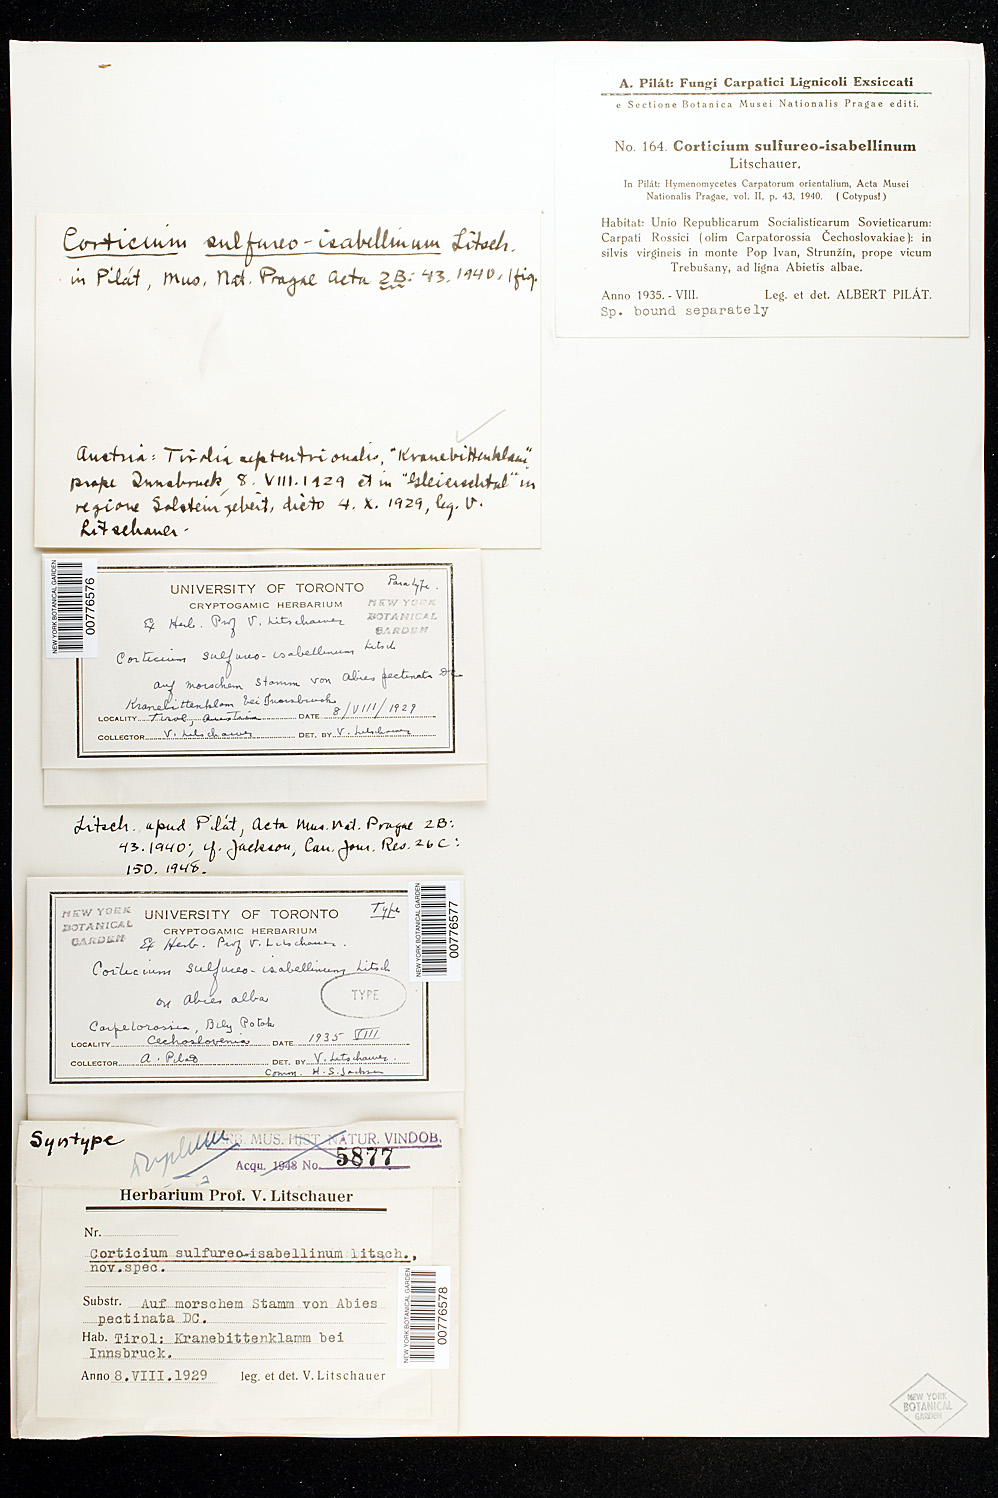 A. Pilát: Fungi Carpatici Lignicoli Exsiccati
e Sectione Botanica Musei Nationalis Pragae editi.
No. 164. Corticium sulfureo-isabellinum
Litschauer.
In Pilát: Hymenomycetes Carpatorum orientalium, Acta Musei
Nationalis Pragae, vol. II, p. 43, 1940. (Cotypus!)
Habitat: Unio Republicarum Socialisticarum Sovieticarum:
Carpati Rossici (olim Carpatorossia Čechoslovakiae): in
silvis virgineis in monte Pop Ivan, Strunžín, prope vicum
Trebušany, ad ligna Abietis albae.
Anno 1935. - VIII. Leg. et det. ALBERT PILÁT.
Sp. bound separately
Corticium sulfureo-isabellinum Litsch.
in Pilát, Mus. Nat. Pragae Acta 2B: 43. 1940. 1 fig.
Austria: Tirolia septentrionalis, "Kranebittenklam"
prope Innsbruck, 8. VIII. 1929 et in "Gleierschtal" in
regione Solsteingebeit, dieto 4. X. 1929, leg. V.
Litschauer.
NEW YORK BOTANICAL GARDEN
00776576
UNIVERSITY OF TORONTO Paratype.
CRYPTOGAMIC HERBARIUM
NEW YORK
BOTANICAL
GARDEN
Ex Herb. Prof V. Litschauer
Corticium sulfureo-isabellinum Litsch
auf morschem Stamm von Abies pectinata DC
Kranebittenklam bei Innsbruck
LOCALITY Tirol, Austria DATE 8/VIII/1929
COLLECTOR V. Litschauer DET. BY V. Litschauer
Litsch. apud Pilát, Acta Mus. Nat. Pragae 2B:
43. 1940; cf. Jackson, Can. Jour. Res. 26C:
150. 1948.
NEW YORK
BOTANICAL
GARDEN
UNIVERSITY OF TORONTO Type
CRYPTOGAMIC HERBARIUM
Ex Herb. Prof V. Litschauer.
Corticium sulfureo-isabellinum Litsch
on Abies alba
TYPE
Carpetorossia, Bily Potok
LOCALITY Cechoslovenia DATE 1935 VIII
COLLECTOR A. Pilat DET. BY V. Litschauer.
Comm. H. S. Jackson
NEW YORK BOTANICAL GARDEN
00776577
Syntype
HERB. MUS. HIST. NATUR. VINDOB.
Acqu. 1948 No. 5877
Herbarium Prof. V. Litschauer
Nr.
Corticium sulfureo-isabellinum litsch.,
nov.spec.
Substr. Auf morschem Stamm von Abies
pectinata DC.
Hab. Tirol: Kranebittenklamm bei
Innsbruck.
Anno 8.VIII.1929 leg. et det. V. Litschauer
NEW YORK BOTANICAL GARDEN
00776578
NEW YORK
BOTANICAL
GARDEN